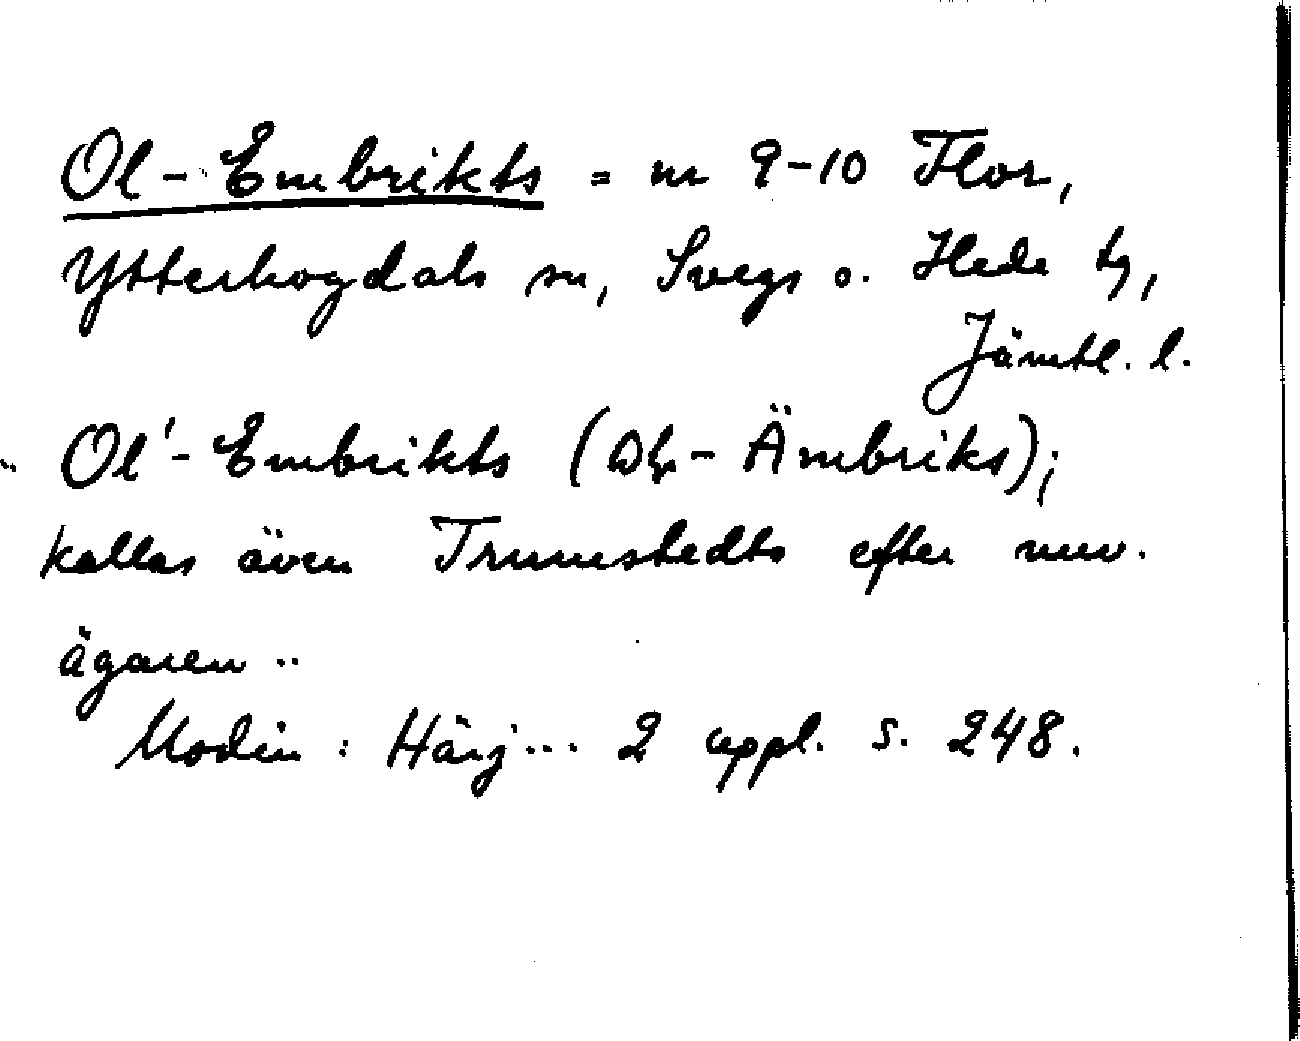 Ol-Embrikts = nr 9-10 Flor,
Ytterhogdals sn, Svegs o. Hede tg,
Jämtl. l.
.. Ol'-Embrikts ( -Ämbriks);
kallas även Trumstedts efter nuv.
ägaren ..
Modin: Härj... 2 uppl. s. 248.